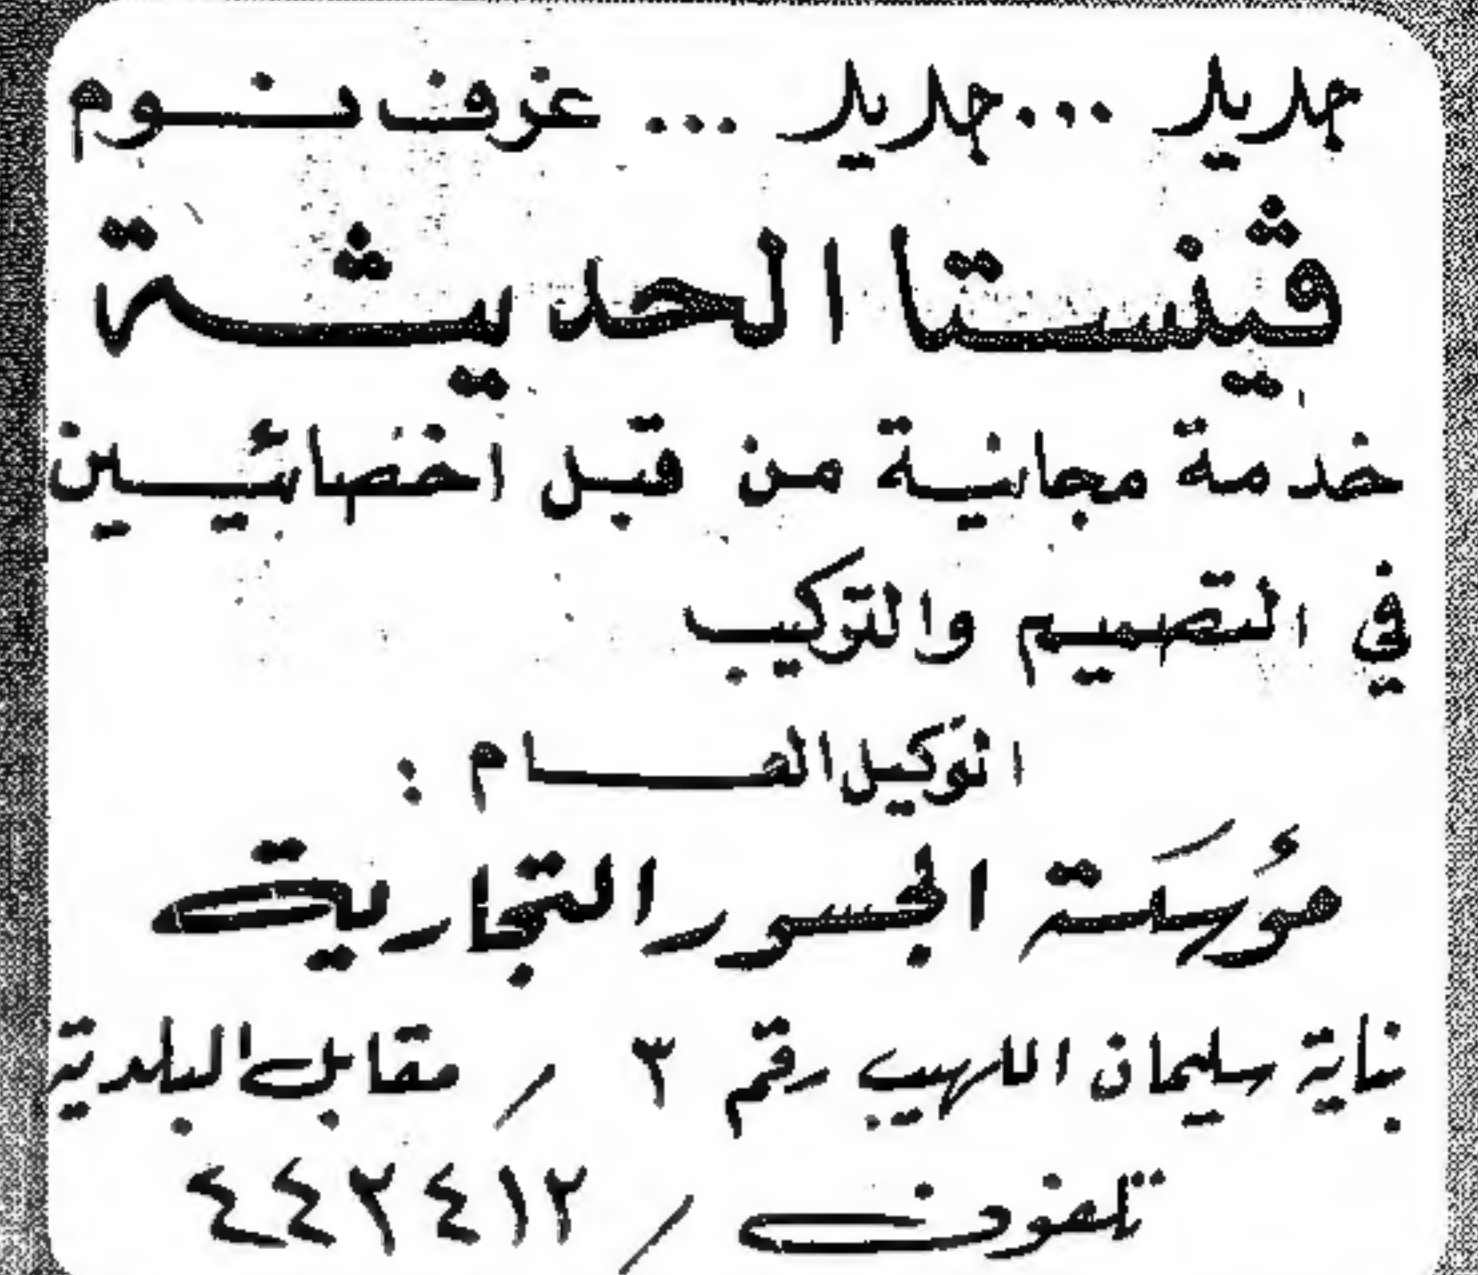 جديد ... جديد ... غرف نوم
ڤينستا الحديثة
خدمة مجانية من قبل اخصائيين
في التصميم والتركيب
الوكيل العام :
مؤسسة الجسور التجارية
بناية سليمان اللهيب رقم ٣ / مقابل البلدية
تلفون / ٤٤٢٤١٢